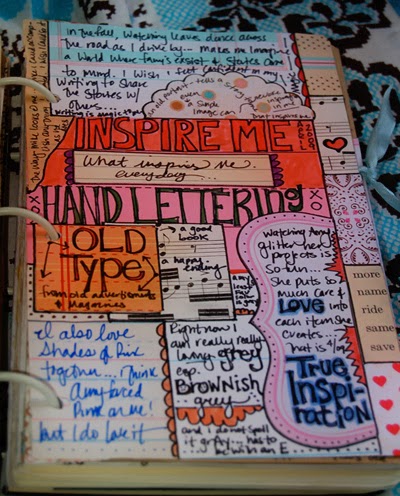 In the fall, watching leaves dance across
the road as I drive by... makes me imagine
a world where fairy's exist & stories come
to mind. I wish I felt confident in my
writing to share
the stories w/
others...
writing is magic
an old portrait tells a story
even a simple
image can
INSPIRE ME
What inspires me
everyday...
HAND LETTERING
XOX
OLD
Type
from old advertisements
& Magazines
a good
book
a happy
ending
watching Amy
glitter her
projects is
so fun...
she puts so
much care &
LOVE into
each item she
creates...
that is
True Inspi-
ration
more
name
ride
same
save
I also love
shades of Pink
together... I think
Amy forced
Pink on me!
but I do love it
Right now I
am really really
loving grey
esp.
Brownish
grey
and I do not spell
it gray... has to
be with an E